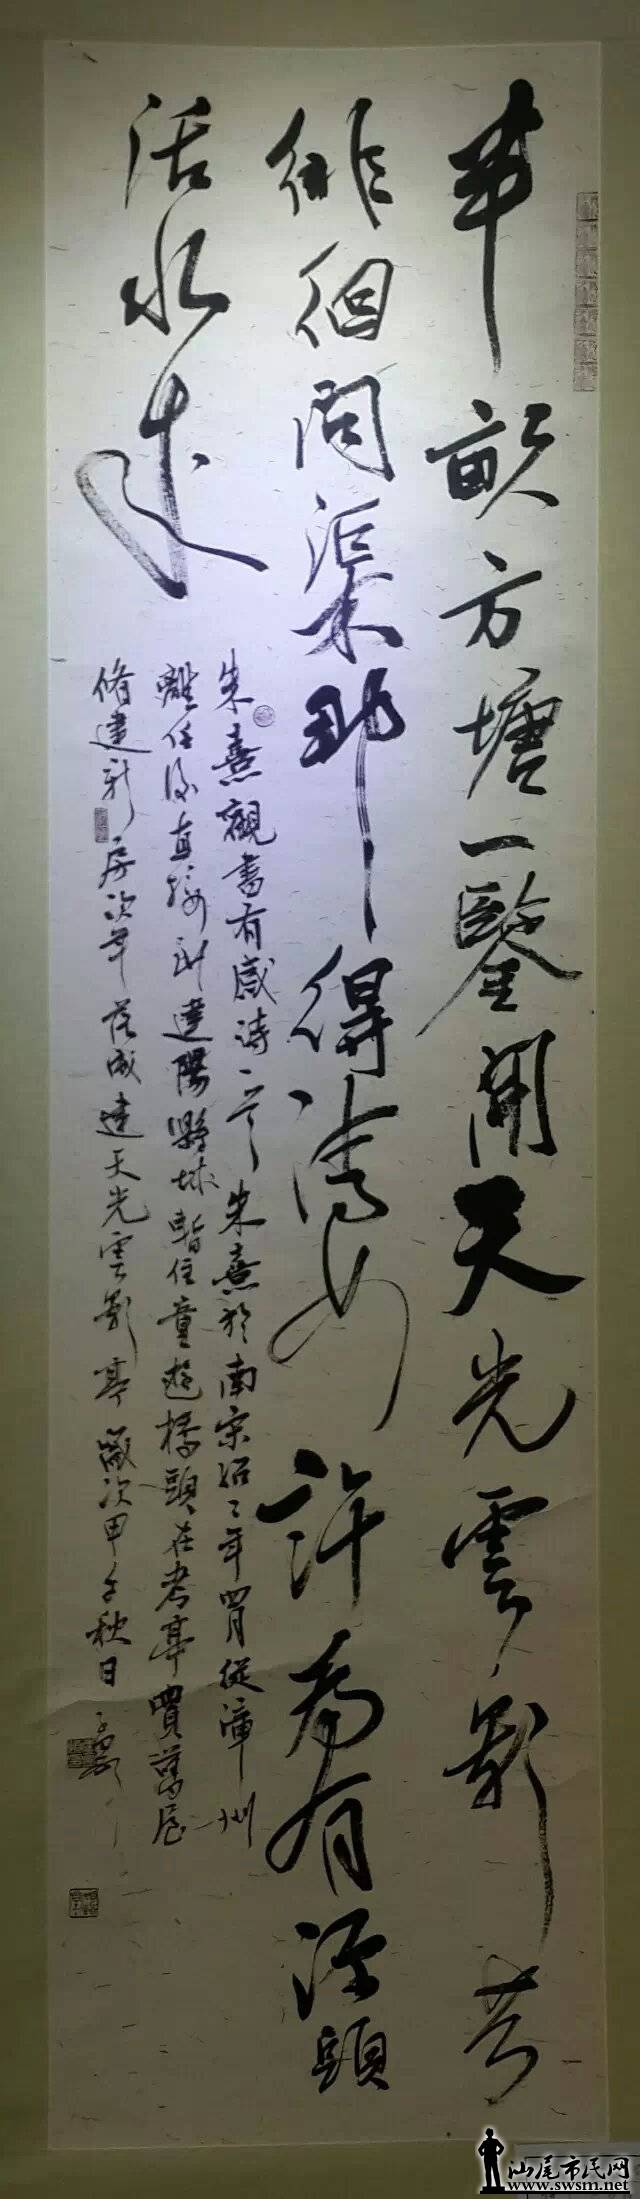 半畝方塘一鑒開天光雲影共
徘徊問渠那得清如許為有源頭
活水来
朱熹觀書有感詩一首朱熹於南宋紹二年四月從漳州
離任後直接到建陽縣城暫住童遊橋頭在考亭買舊屋
脩建新房次年落成建天光雲影亭歲次甲午秋日
汕尾市民网
www.swsm.net